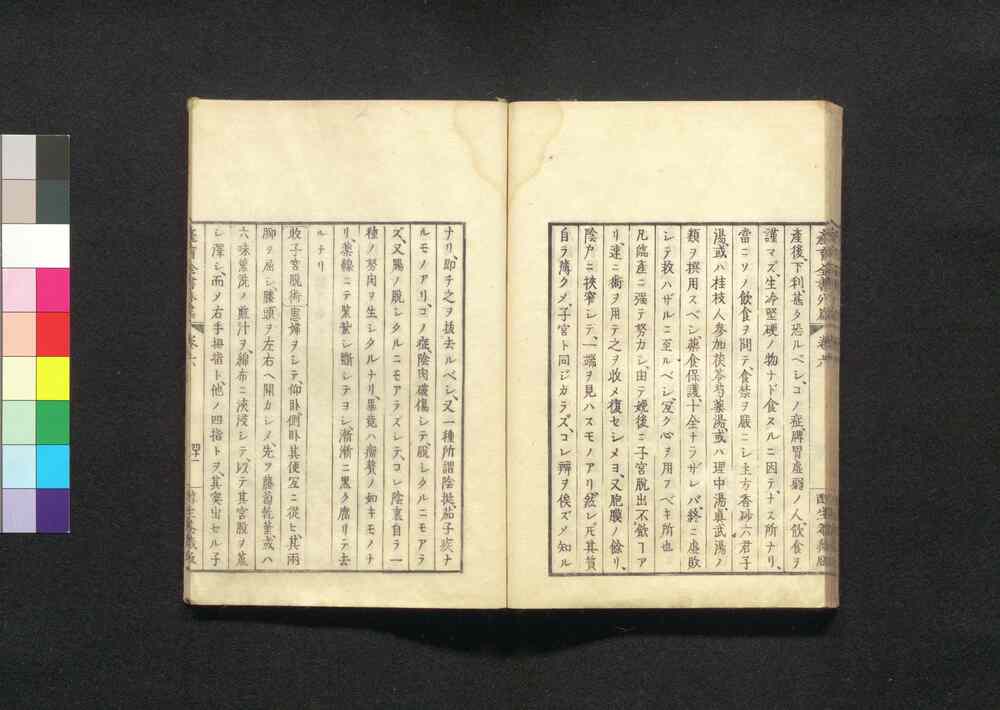 産後、下利甚タ恐ルベシ、コノ症脾胃虚弱ノ人飲食ヲ
謹マズ、生冷堅硬ノ物ナド食スルニ因テ、ナス所ナリ、
當ニソノ飲食ヲ問テ、食禁ヲ嚴ニシ主方香砂六君子
湯、或ハ桂枝人參加茯苓芍藥湯、或ハ理中湯眞武湯ノ
類ヲ撰用スベシ、藥食保護、十全ナラザレバ、終ニ虚敗
シテ救ハザルニ至ルベシ、宜ク心ヲ用フベキ所也
凡臨產ニ强テ努力シ、由テ娩後ニ子宮脱出不歛ヿア
リ、速ニ術ヲ用テ之ヲ收メ復セシメヨ、又胞膜ノ餘リ、
陰戸ニ挾窄シテ、一端ヲ見ハスモノアリ、然レドモ其質
自ラ薄クメ、子宮ト同ジカラズ、コレ辨ヲ俟ズメ知ル
ナリ、即チ之ヲ拔去ルベシ、又一種所謂陰挺茄子疾ナ
ルモノアリ、コノ症、陰肉破傷シテ、脱シタルニモアラ
ズ、又腸ノ脱シタルニモアラズシテ、コレ陰裏自ラ一
種ノ努肉ヲ生シタルナリ、畢竟ハ瘤贅ノ如キモノナ
リ、藥線ニテ緊紮シ斷シテヨシ、漸漸ニ黒ク腐リテ去
ルナリ
收子宮脱術、患婦ヲシテ、仰臥側臥其便宜ニ從ヒ、其兩
脚ヲ屈シ、膝頭ヲ左右ヘ開カシメ、先ヲ藤菊乾葉或ハ
六味蒸洗ノ煎汁ヲ、綿布ニ浹浸シテ、以テ其宮股ヲ蒸
シ澤シ、而ソ右手拇指ト、他ノ四指トヲ、其突出セル子
産育全書外篇 卷六